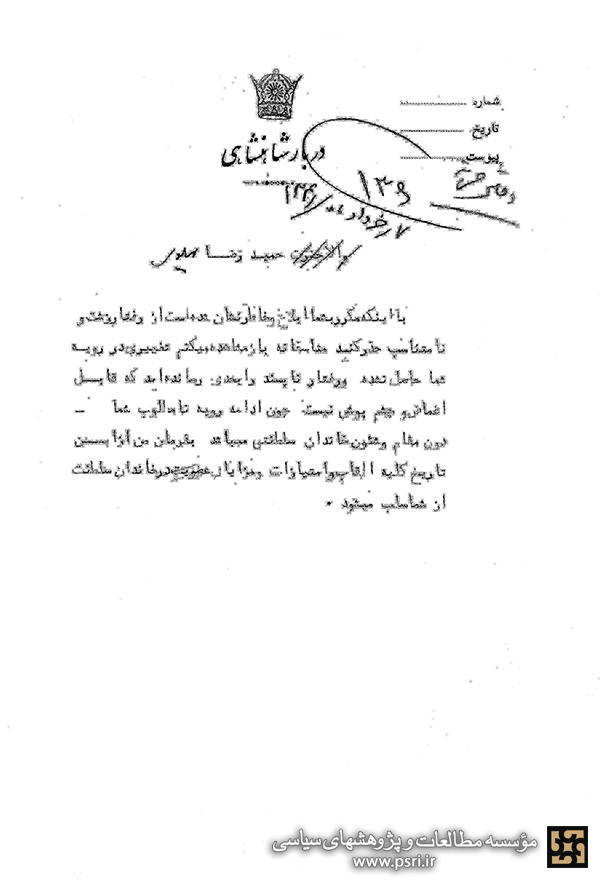 شماره
تاریخ
پیوست
دربار شاهنشاهی
۱۳۹
حمید رضا
با اینکه مکرر بشما ابلاغ و خاطرنشان شده است از رفتار زشت و
نامتناسب حذر کنید متاسفانه باز مشاهده میکنم تغییری در رویه
شما حاصل نشده و رفتار ناپسند را بحدی رسانده اید که قابل
اغماض و چشم پوشی نیست چون ادامه رویه نامطلوب شما -
دون مقام و شئون خاندان سلطنتی میباشد بفرمان من از این
تاریخ کلیه القاب و امتیازات و مزایای عضویت در خاندان سلطنت
از شما سلب میشود .
مؤسسه مطالعات و پژوهشهای سیاسی
www.psri.ir